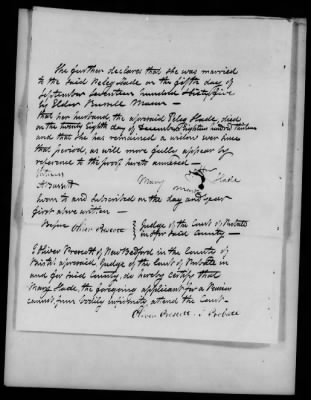 She further declares that she was married
to the said Peleg Slade on the fifth day of
September Seventeen hundred & sixty five
by Elder Russell Mason —
that her husband, the aforesaid Peleg Slade, died
on the twenty Eighth day of December Eighteen hundred thirteen
and that she has remained a widow ever since
that period, as will more fully appear by
reference to the proof hereto annexed —
Witness
Mary Slade
mark
Sworn to and subscribed on the day and year
first above written —
Before Oliver Prescott } Judge of the Court of Probate
in & for said County
I Oliver Prescott of New Bedford in the County of
Bristol aforesaid Judge of the Court of Probate in
and for said County, do hereby certify that
Mary Slade, the foregoing applicant for a Pension
cannot from bodily infirmity attend the Court —
Oliver Prescott J. Probate